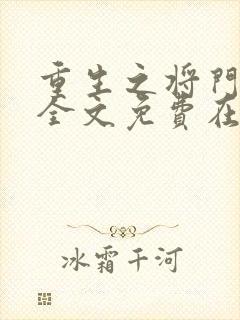 重生之将門
全文免費在
冰霜千河